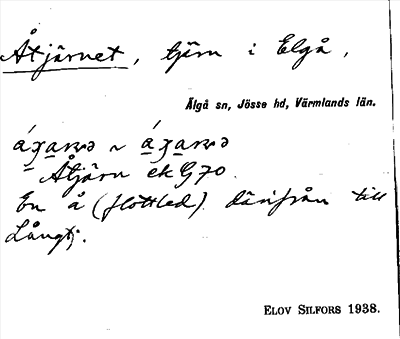 Åtjärnet, tjärn i Elgå,
Älgå sn, Jösse hd, Värmlands län.
Åtjärn ek G 70.
En å (flottled) därifrån till
Långtj.
ELOV SILFORS 1938.